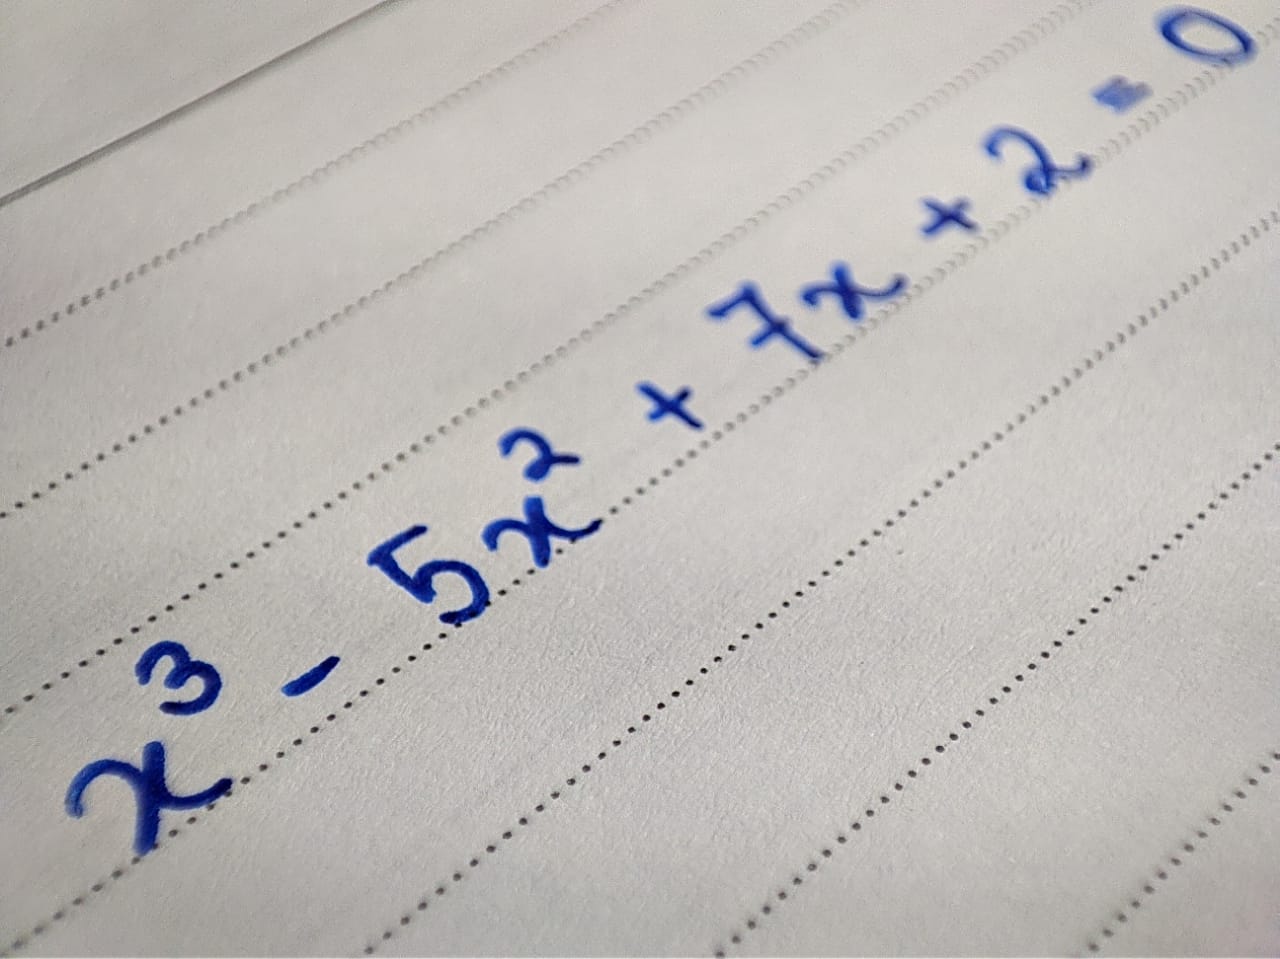 x³ - 5x² + 7x + 2 = 0